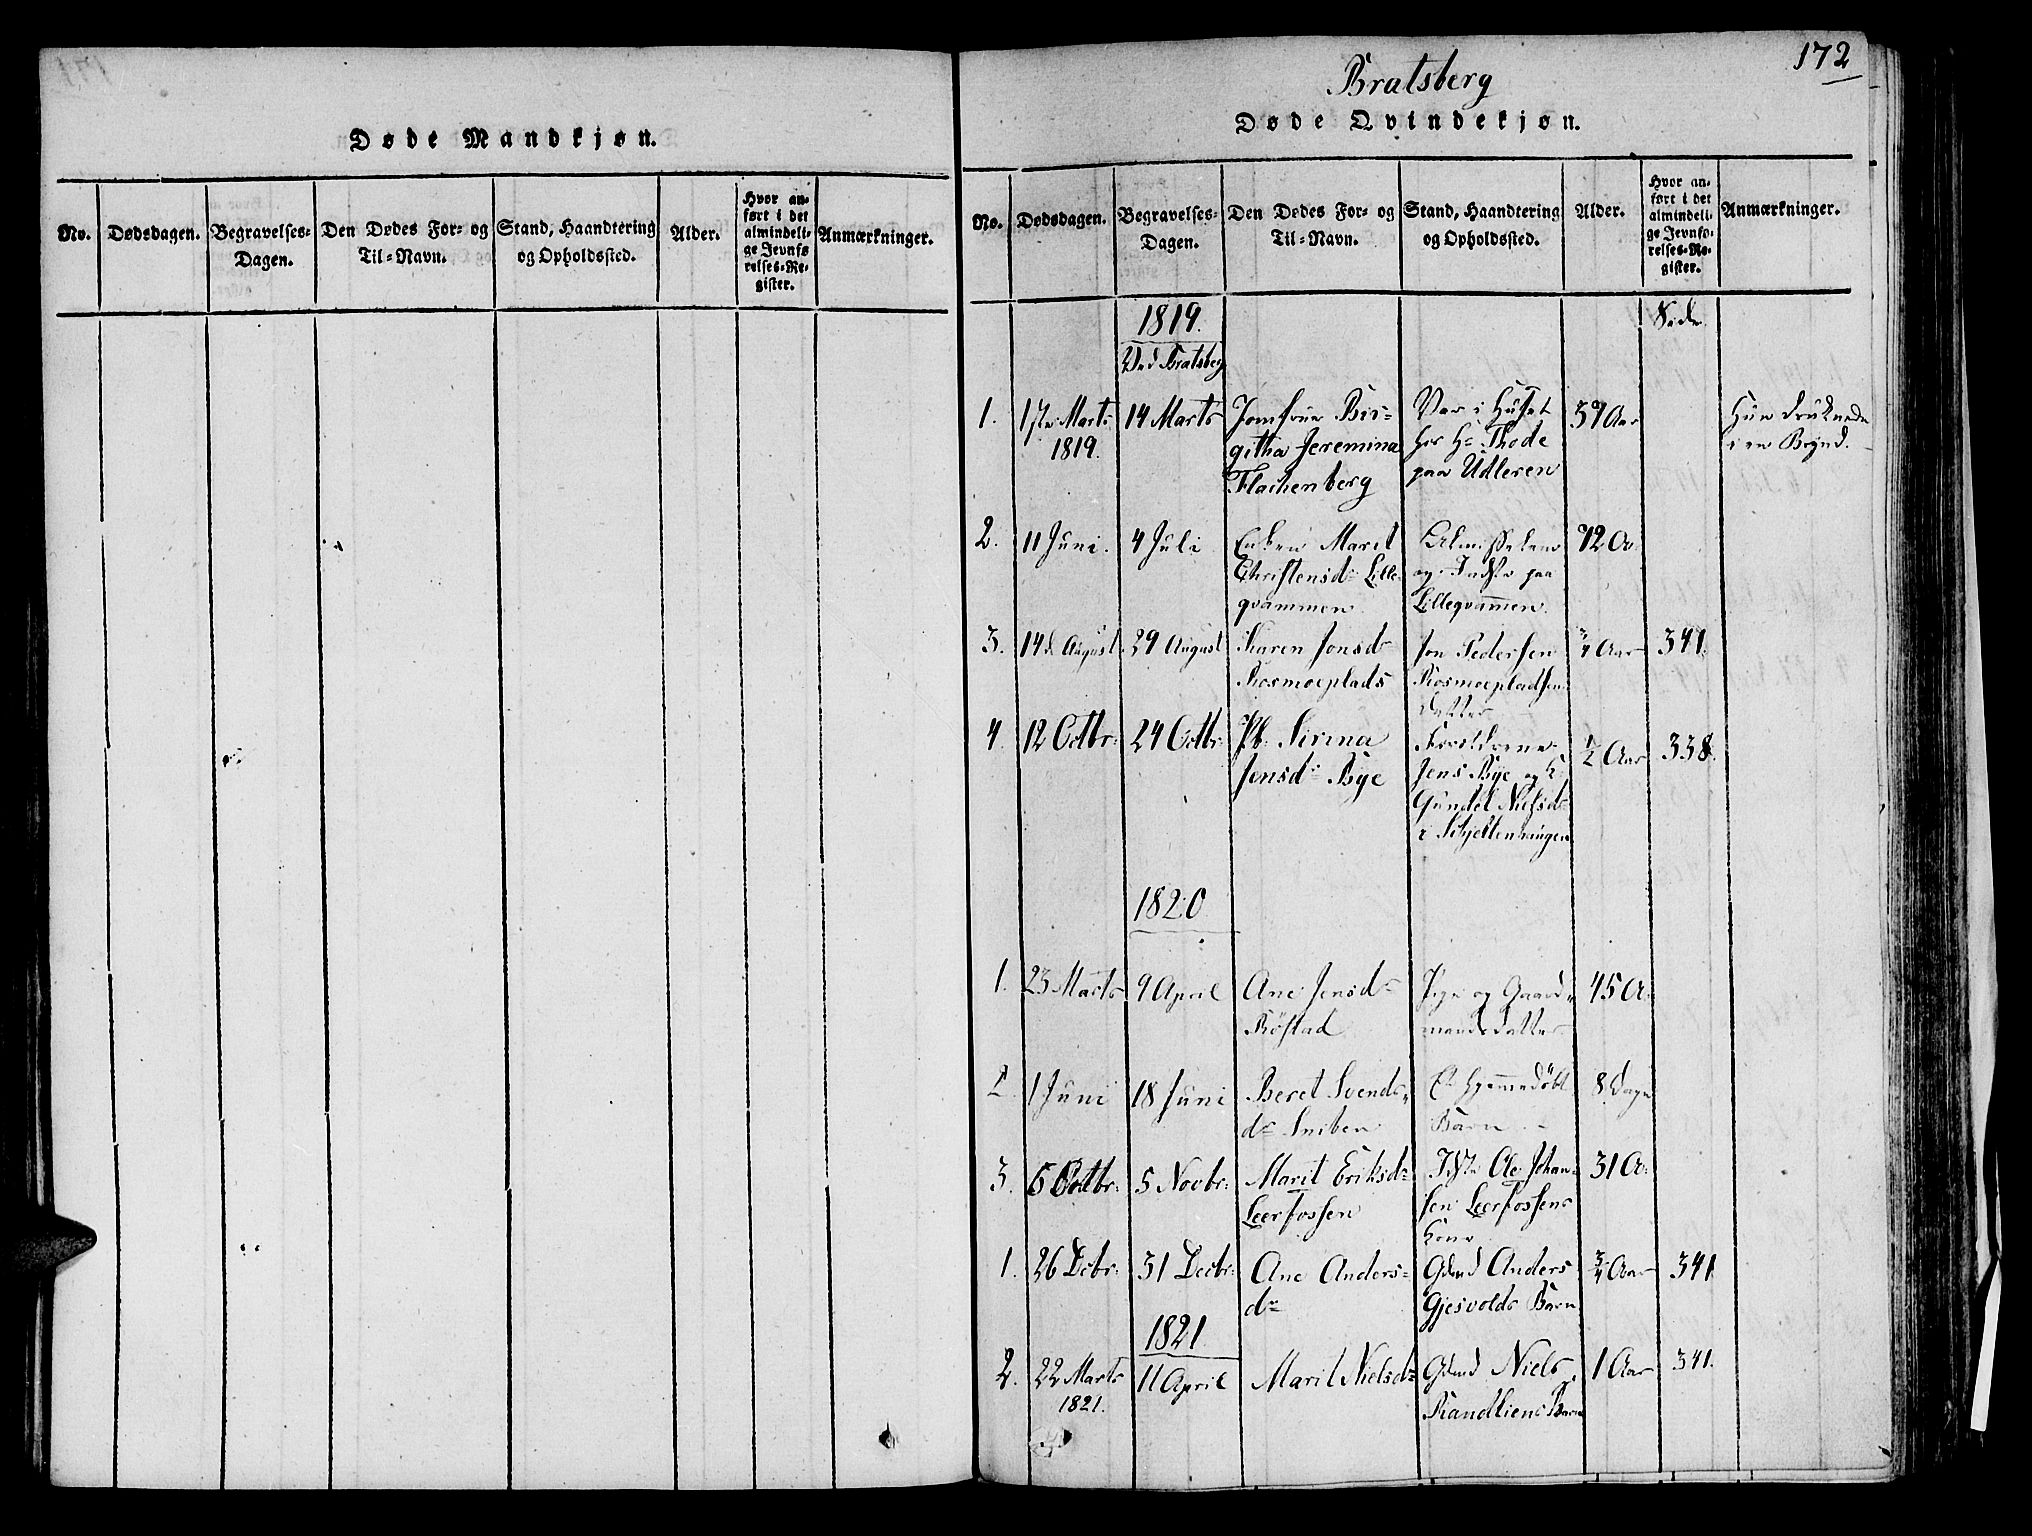 Døde Mandkjøn.
No.
Dødsdagen.
Begravelses-
Dagen.
Den Dødes For- og
Til-Navn.
Stand, Haandtering
og Opholdssted.
Alder.
Hvor an-
ført i det
almindeli-
ge Jevnfø
relses-Re-
gister.
Anmærkninger.
172
Bratsberg
Døde Qvindekjøn.
No.
Dødsdagen.
Begravelses-
Dagen.
Den Dødes For- og
Til-Navn.
Stand, Haandtering
og Opholdssted.
Alder.
Hvor an-
ført i det
almindeli-
ge Jevnfø-
relses-Re-
gister.
Anmærkninger.
1819.
Side
Ved Bratsberg
1.
Marts
1819.
14 Marts
Jomfrue Bir-
githa Jeremina
Flachenberg
Var i Huset
hos Hr Thode
paa Udleren
Aar
Hun druknede
i en Brønd.
2.
11 Juni.
4 Juli
Enken Marit
Christensdr Lille-
qvammen
og Indste paa
Lilleqvammen.
72 A.
3.
14de August.
29 August
Karen Jonsdr
Rosmoeplads
Jon Pedersen
Rosmoepladsens
Datter
3/4 Aar
341.
4.
12 Octbr:
24 Octbr:
Pb. Sirina
Jensdr Bye
Forældrene
Jens Bye og K
Gundel Nielsdr
i Schjettenhaugen
1/2 Aar
338.
1820
1.
23 Marts
9 April
Ane Jensdr
Røstad
Pige og Gaard-
mandsdatter
45 A.
2.
1 Juni
18 Juni
Beret Svends-
dr Sniben
Et hjemmedøbt
Barn
8 Dage
3.
5 Octbr:
5 Novbr:
Marit Eriksdr
Leerfossen
Idste Ole Johan-
sen Leerfossens
Kone
31 A.
1.
26 Debr:
31 Decbr:
Ane Anders-
dr
Gdmd Anders
Gjesvolds Barn
3/4 Aar
341
1821.
2.
22 Marts
1821.
11 April
Marit Nielsdr
Gdmd Niels
Randliens Barn
1 Aar
341.